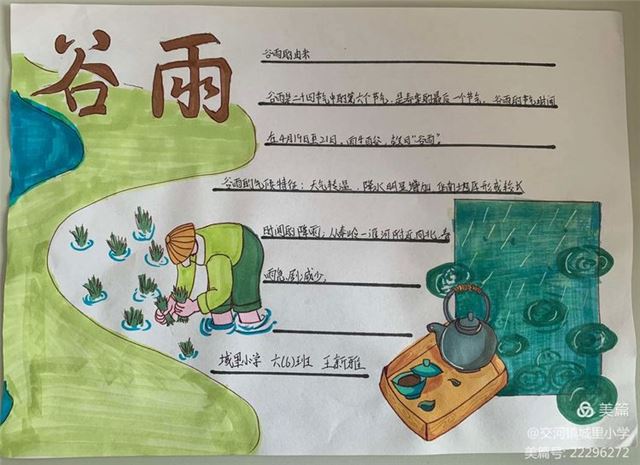 谷雨
谷雨的由来
谷雨是二十四节气中的第六个节气，是春季的最后一个节气。谷雨的节气时间
在4月19日至21日，雨生百谷，故曰"谷雨"。
谷雨的气候特征：天气转温，降水明显增加，但南地区形成较长
时间的降雨，从秦岭—淮河附近向北，春
雨急剧减少。
城里小学 六(6)班 王新雅
美篇
@交河镇城里小学
美篇号: 22296272